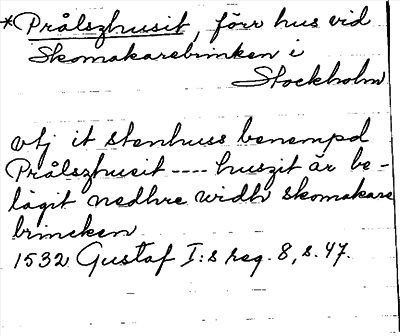 *Prålszhusit, förr hus vid
Skomakarebrinken i
Stockholm
vtj it stenhuss benempd
Prålszhusit ---- huszit är be-
lägit nedhre widh skomakare
brincken
1532 Gustaf I:s reg. 8, s. 47.